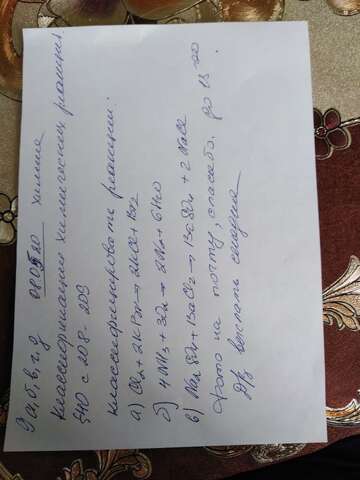 9 а, б, в, г, д 080520 химия
Классификация химических реакций.
§40 с 108-203
Классифицировать реакции:
а) Cl2 + 2KBr → 2KCl + Br2
б) 4NH3 + 3O2 → 2N2 + 6H2O
в) Na2SO4 + BaCl2 → BaSO4 + 2NaCl
Фото на почту, спасибо. до 15-00
Д/З выслать сегодня